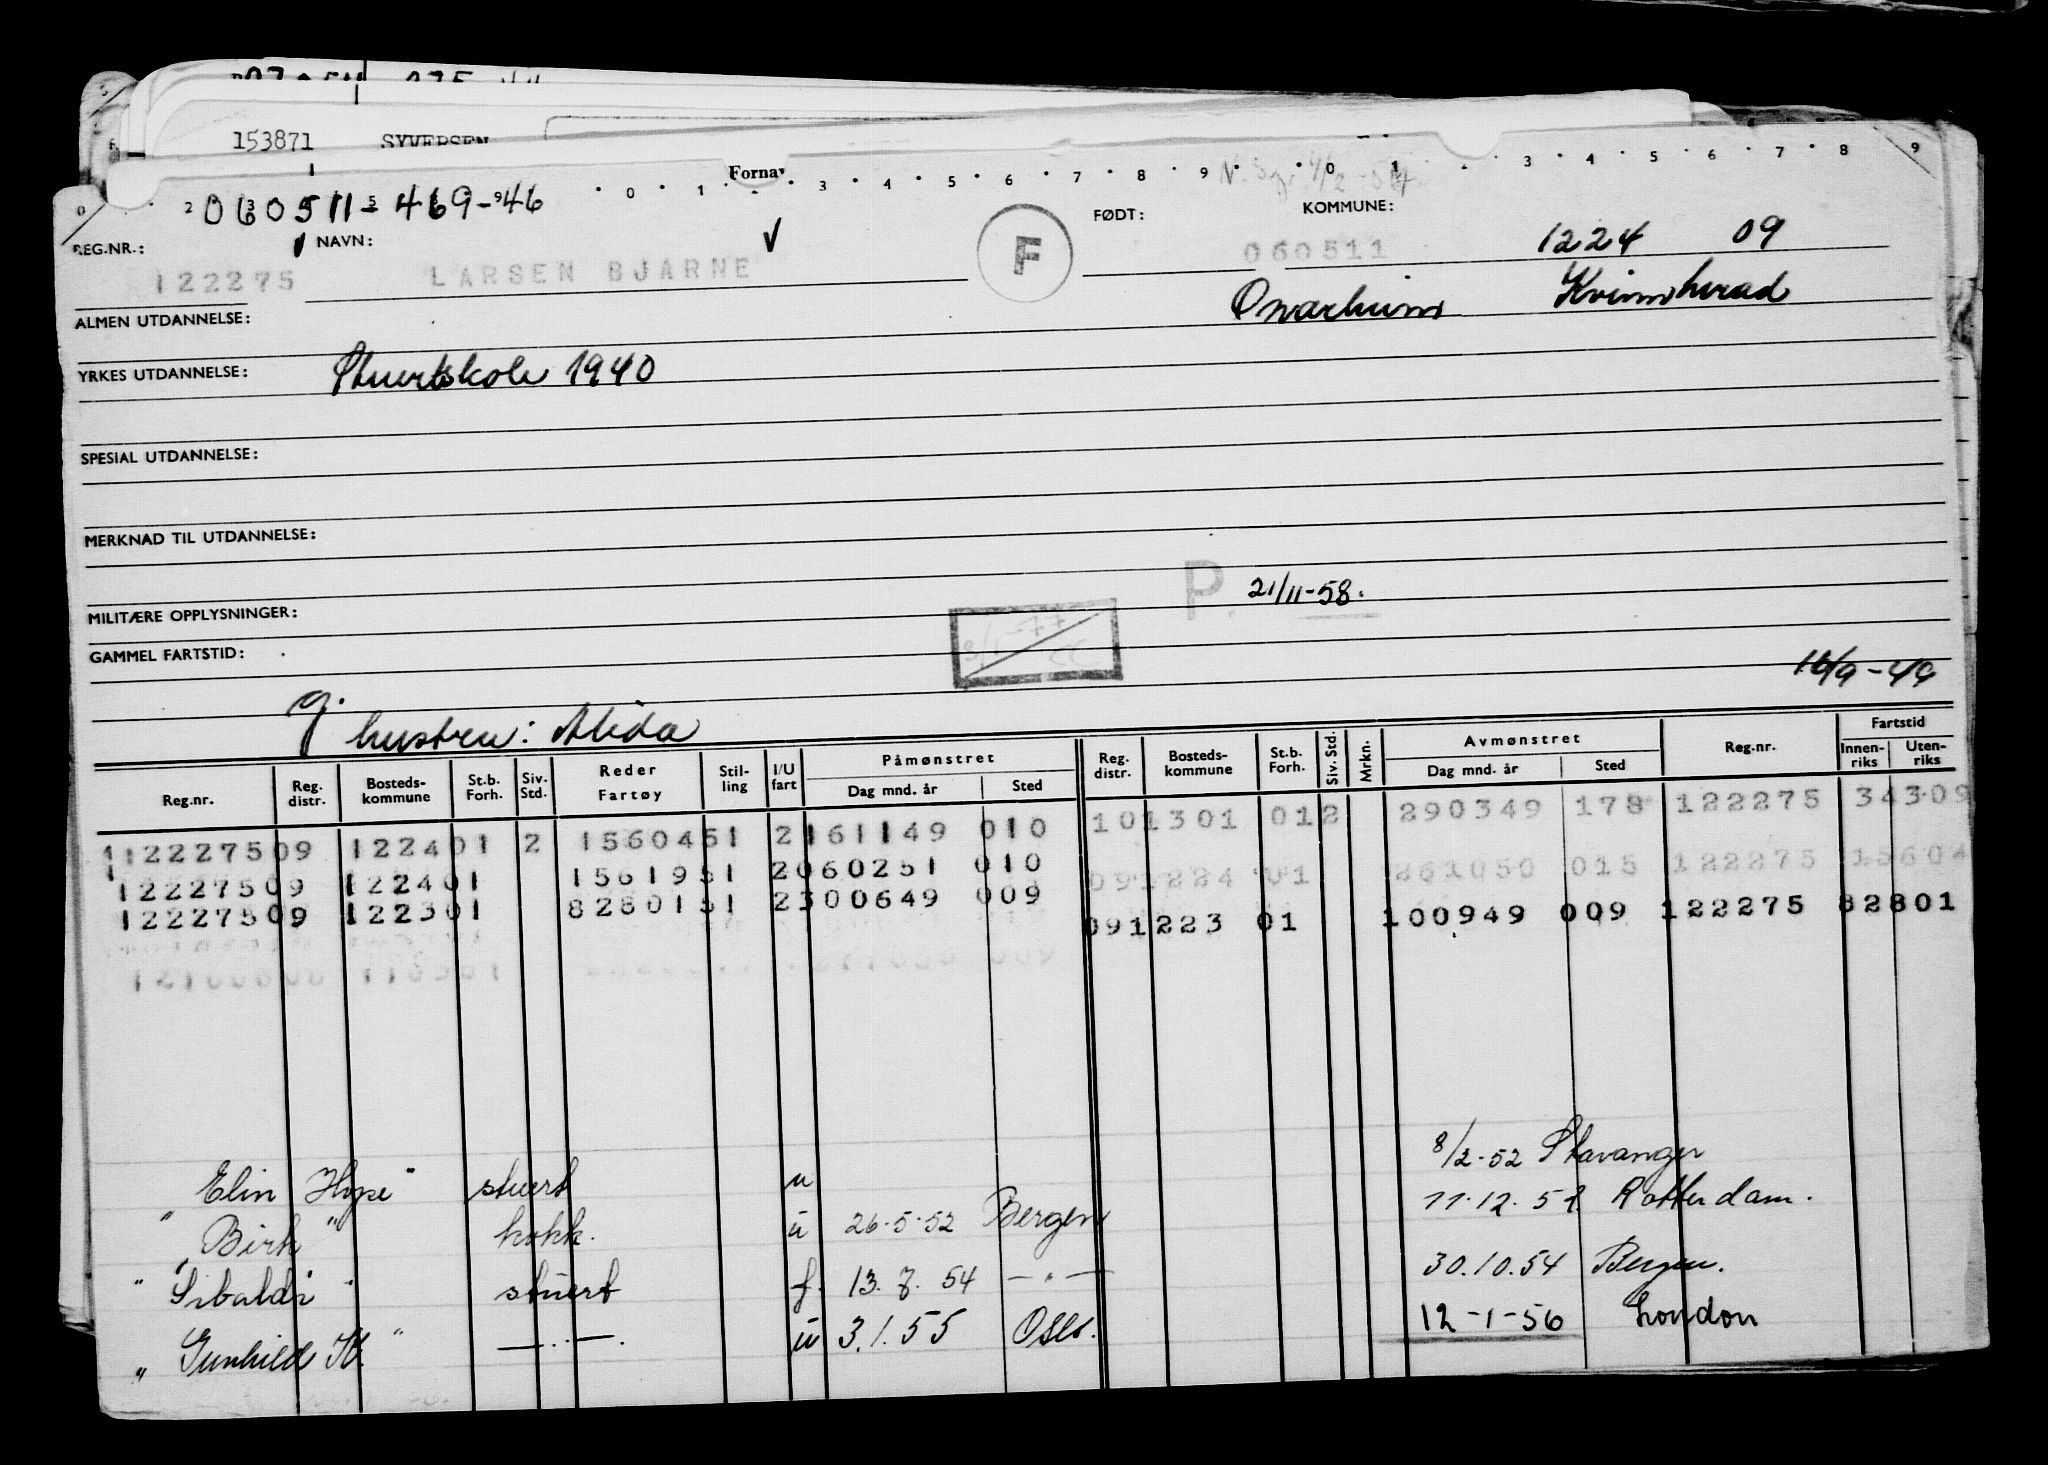 153871 SYVERSEN
Fornav
060511-469-46
0 1 2 3 4 5 6 7 8 9 0 1 3 4 5 6 7 8 9
REG.NR.: NAVN: F FØDT: KOMMUNE:
122275 LARSEN BJARNE 060511 1224 09
ALMEN UTDANNELSE: Kvinnherad
YRKES UTDANNELSE: Stuertskole 1940
SPESIAL UTDANNELSE:
MERKNAD TIL UTDANNELSE:
MILITÆRE OPPLYSNINGER: P. 21/11-58.
GAMMEL FARTSTID:
g. hustru: Alida
Reg.nr. Reg. distr. Bosteds-kommune St.b. Forh. Siv. Std. Reder Fartøy Stil-ling I/U fart Påmønstret Dag mnd. år Sted Reg. distr. Bosteds-kommune St.b. Forh. Siv. Std. Mrkn. Avmønstret Dag mnd. år Sted Reg.nr. Fartstid Innen-riks Uten-riks
12227509 122401 2 1560451 2161149 010 101301 012 290349 178 122275 34309
12227509 122401 1561951 2060251 010 091224 01 261050 015 122275 15604
12227509 122301 8280151 2300649 009 091223 01 100949 009 122275 82801
"Elin Hope" stuert u 8/2-52 Stavanger
"Birk" kokk. u 26-5-52 Bergen 11.12.52 Rotterdam.
"Sibaldi" stuert f. 13.7.54 —"— 30.10.54 Bergen.
"Gunhild —"—. u 3.1.55 Oslo. 12-1-56 London